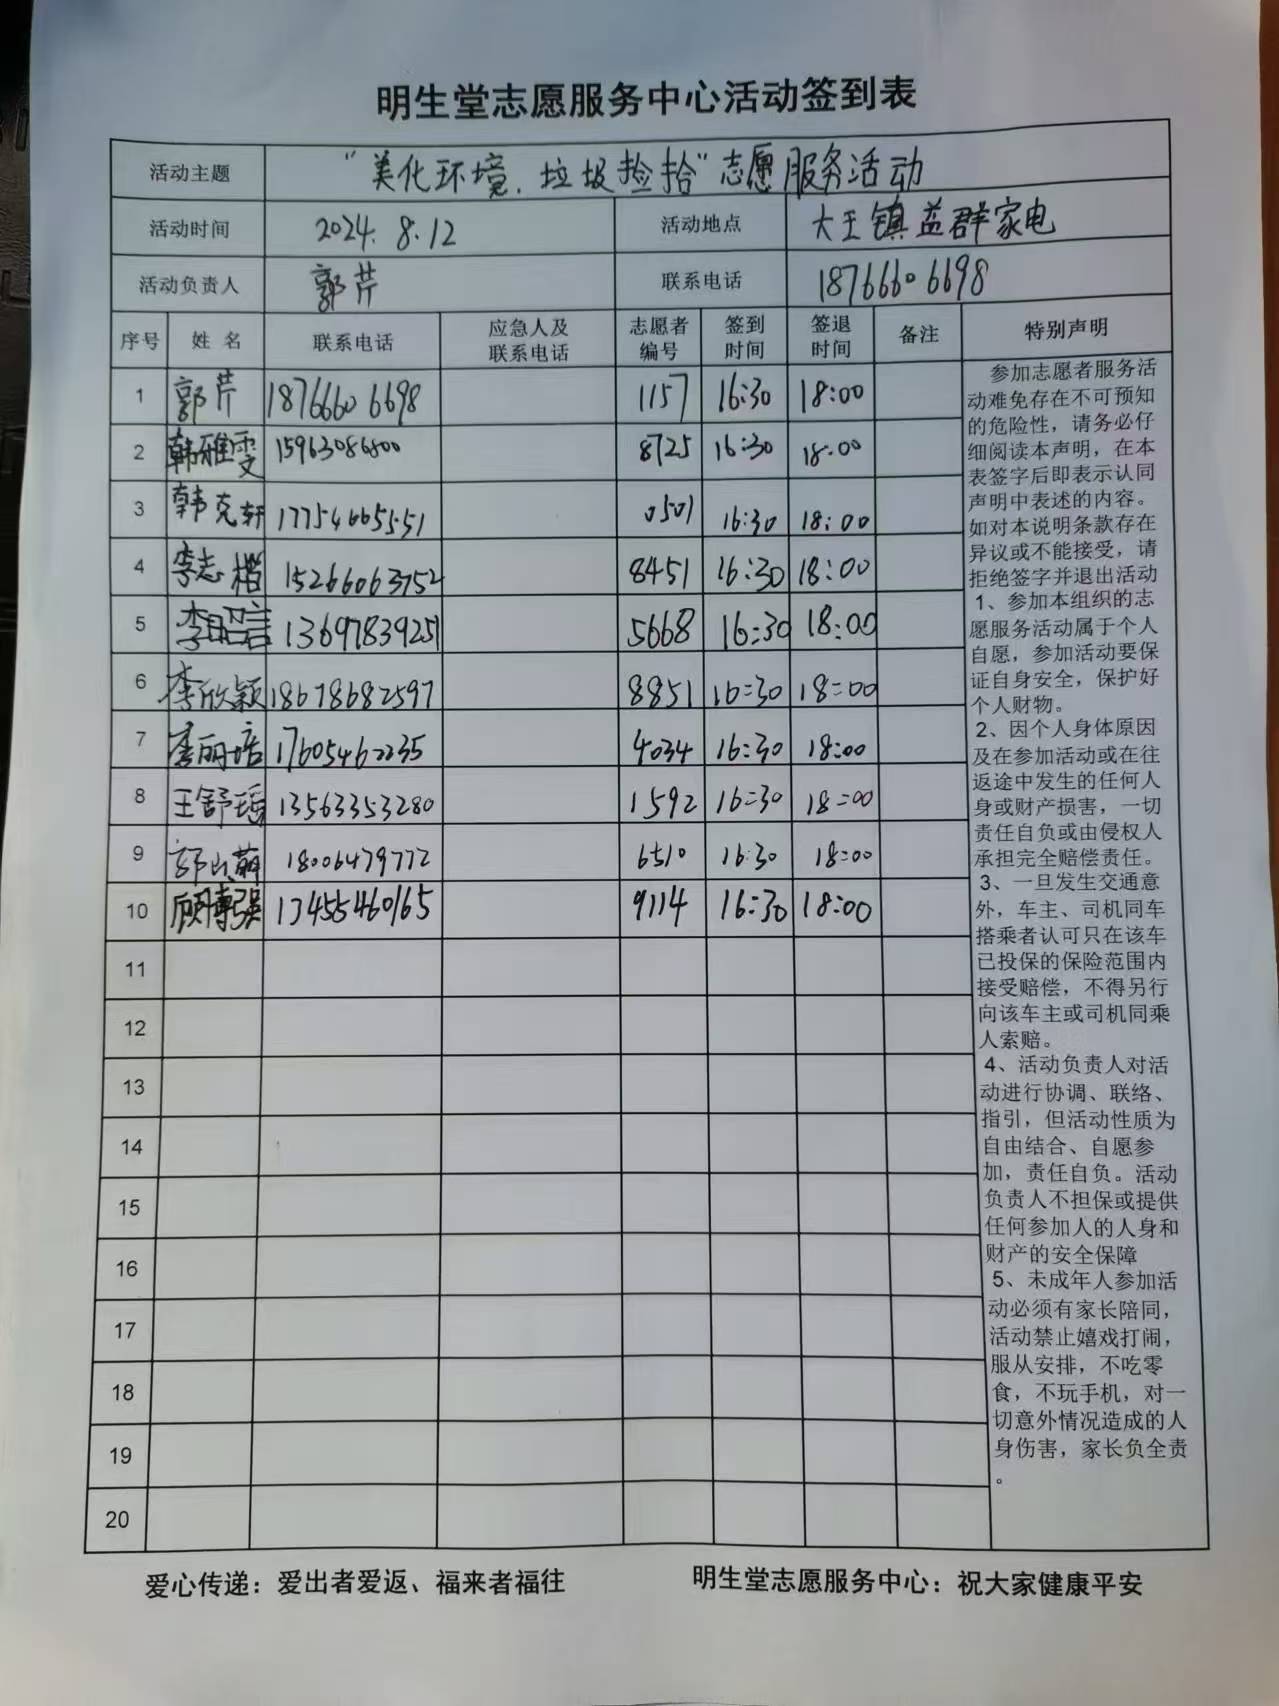 明生堂志愿服务中心活动签到表
活动主题 “美化环境、垃圾捡拾”志愿服务活动
活动时间 2024.8.12 活动地点 大王镇益群家电
活动负责人 郭芹 联系电话 18766606698
序号 姓名 联系电话 应急人及联系电话 志愿者编号 签到时间 签退时间 备注 特别声明
1 郭芹 18766606698 1157 16:30 18:00
2 韩雅雯 15963086800 8725 16:30 18:00
3 韩克轩 17754665551 0501 16:30 18:00
4 李志楷 15266063752 8451 16:30 18:00
5 李昭言 13697839251 5668 16:30 18:00
6 李欣颖 18678682597 8851 16:30 18:00
7 李丽培 17605462235 4034 16:30 18:00
8 王舒瑶 13563353280 1592 16:30 18:00
9 18006479772 6510 16:30 18:00
10 顾博强 17455460165 9114 16:30 18:00
11
12
13
14
15
16
17
18
19
20
参加志愿者服务活
动难免存在不可预知
的危险性，请务必仔
细阅读本声明，在本
表签字后即表示认同
声明中表述的内容。
如对本说明条款存在
异议或不能接受，请
拒绝签字并退出活动
1、参加本组织的志
愿服务活动属于个人
自愿，参加活动要保
证自身安全，保护好
个人财物。
2、因个人身体原因
及在参加活动或在往
返途中发生的任何人
身或财产损害，一切
责任自负或由侵权人
承担完全赔偿责任。
3、一旦发生交通意
外，车主、司机同车
搭乘者认可只在该车
已投保的保险范围内
接受赔偿，不得另行
向该车主或司机同乘
人索赔。
4、活动负责人对活
动进行协调、联络、
指引，但活动性质为
自由结合、自愿参
加，责任自负。活动
负责人不担保或提供
任何参加人的人身和
财产的安全保障
5、未成年人参加活
动必须有家长陪同，
活动禁止嬉戏打闹，
服从安排，不吃零
食，不玩手机，对一
切意外情况造成的人
身伤害，家长负全责
。
爱心传递：爱出者爱返、福来者福往 明生堂志愿服务中心：祝大家健康平安